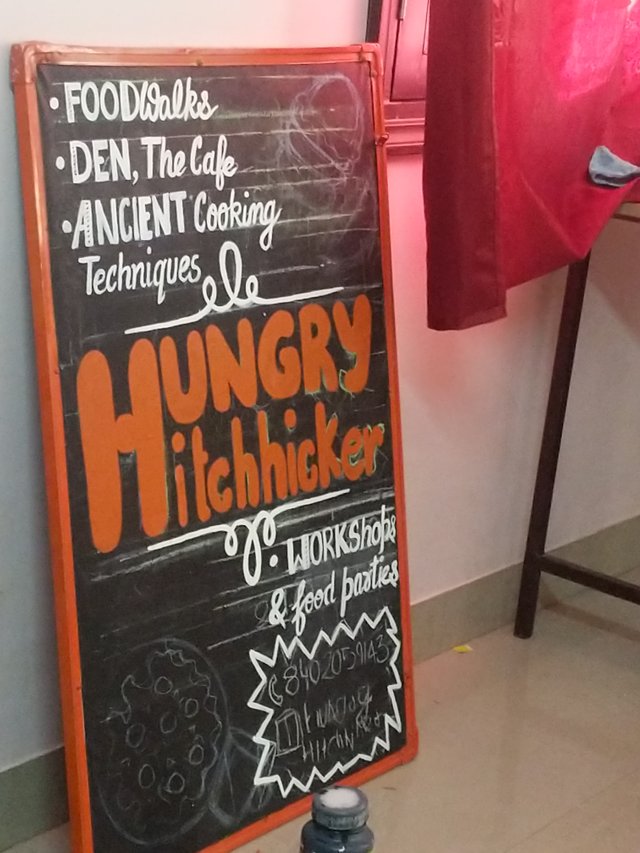 • FOODWalks
• DEN, The Cafe
• ANCIENT Cooking
Techniques
HUNGRY
Hitchhicker
• WORKShops
& food parties
8402059143